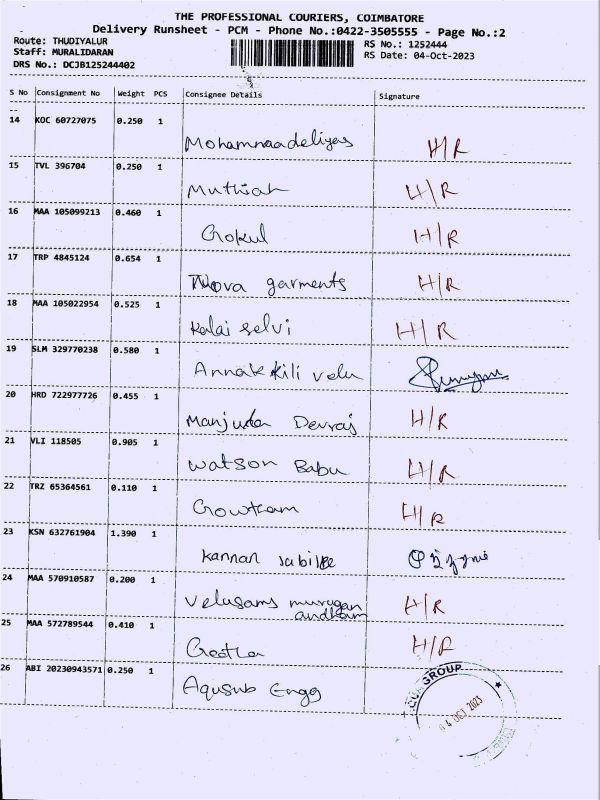 THE PROFESSIONAL COURIERS, COIMBATORE
Delivery Runsheet - PCM - Phone No.:0422-3505555 - Page No.:2
Route: THUDIYALUR RS No.: 1252444
Staff: MURALIDARAN RS Date: 04-Oct-2023
DRS No.: DCJB125244402
S No Consignment No Weight PCS Consignee Details Signature
14 KOC 60727075 0.250 1
H/R
15 TVL 396704 0.250 1
Muthiah H/R
16 MAA 105099213 0.460 1
Gokul H/R
17 TRP 4845124 0.654 1
Nova garments H/R
18 MAA 105022954 0.525 1
Kalai selvi H/R
19 SLM 329770238 0.580 1
Annakkili velu
20 HRD 722977726 0.455 1
Manjula Devraj H/R
21 VLI 118505 0.905 1
Watson Babu H/R
22 TRZ 65364561 0.110 1
Gowtham H/R
23 KSN 632761904 1.390 1
Kannan
24 MAA 570910587 0.200 1
Velusams murugan H/R
andham
25 MAA 572789544 0.410 1
Geetha H/R
26 ABI 20230943571 0.250 1
Aqusub Engg
GROUP
04 OCT 2023